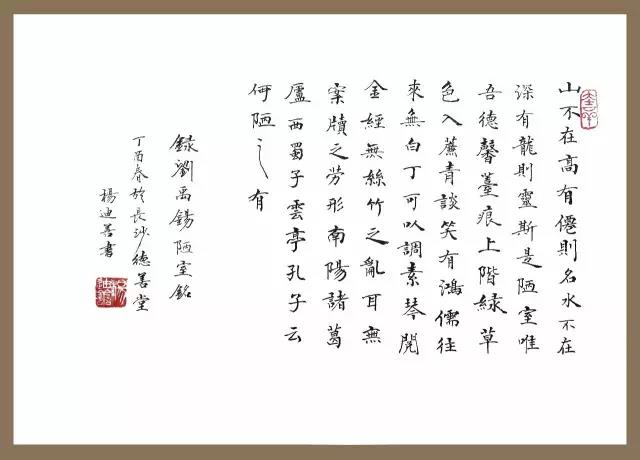 山不在高有僊則名水不在
深有龍則靈斯是陋室唯
吾德馨薹痕上階緑草
色入簾青談笑有鴻儒往
來無白丁可以調素琴閱
金經無絲竹之亂耳無
案牘之勞形南陽諸葛
廬西蜀子雲亭孔子云
何陋之有
錄劉禹錫陋室銘
丁酉春於長沙德善堂
楊迪善書